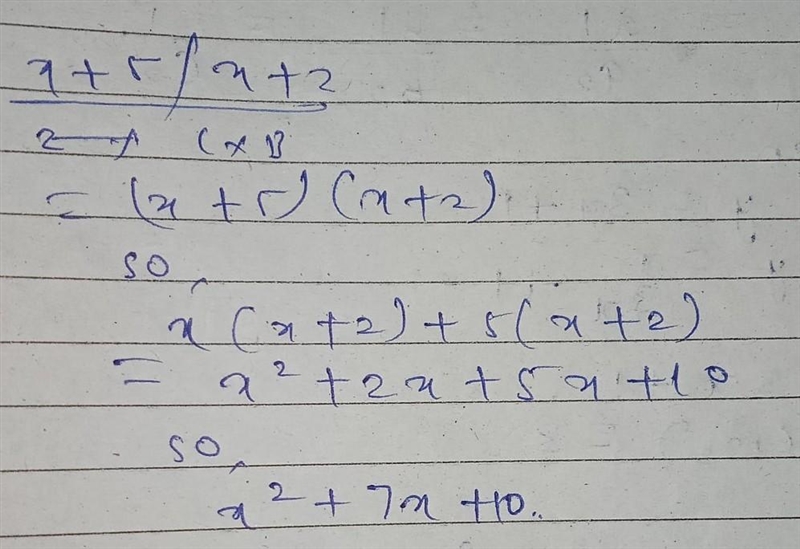 x+5/x+2
2 → (x)
= (x+5)(x+2)
so,
x(x+2)+5(x+2)
= x²+2x+5x+10
so,
x²+7x+10..